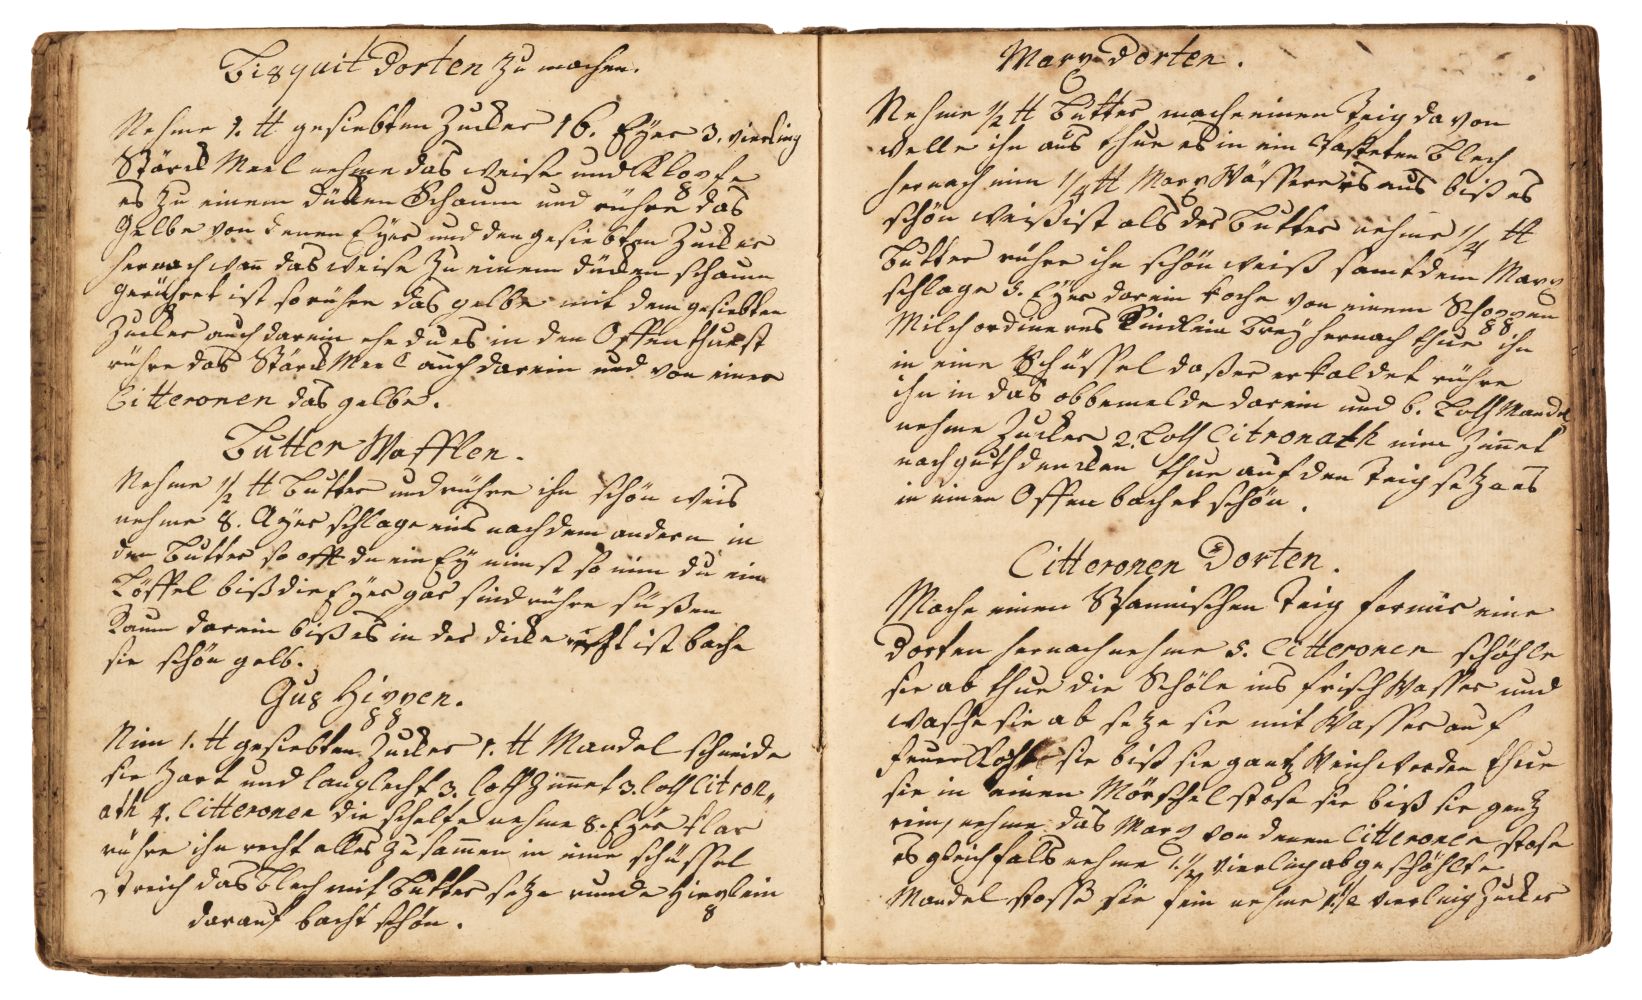 Bisquit Dorten zu machen.
Nehme 1. ℔ gesiebten Zucker 16. Eyer 3. vierling
Stärck Meel nehme das weise und Klopfe
es zu einem dücken Schaum und rühre das
Gelbe von denen Eyer und den gesiebten Zucker
hernach wan̄ das weise zu einem dücken schaum
gerühret ist so rühre das gelbe mit dem gesiebten
Zucker auch darein ehe du es in den Offen thuest
rühre das Stärck Meel auch darein und von einer
Citteronen das gelbe.
Butter Wafflen.
Nehme ½ ℔ Butter und rühre ihn schön weis
nehme 8. Ayer schlage eins nach dem andern in
den Butter so offt du ein Ey nimst so nim du ein
Löffel biß die Eyer gar sind rühre süßen
Raum darein biß es in der dicke recht ist bache
sie schön gelb.
Gus Hippen.
Nim 1. ℔ gesiebten Zucker 1. ℔ Mandel schneide
sie zart und langlecht 3. loth Zim̄et 3. loth Citron„
ath 4. Citteronen die schelfe nehme 8. Eyer klar
rühre ihn recht alles zusam̄en in eine schüssel
streich das Blech mit Butter setze runde Hipplein
darauf bachs schön.
Marx Dorten.
Nehme ½ ℔ Butter mache einen Teig davon
welle ihn aus thue es in ein Pasteten Blech
hernach nim ¼ ℔ Marx Wässere es aus biß es
schön weiß ist als der Butter nehme ¼ ℔
Butter rühre ihn schön weiß samt dem Marx
schlage 3. Eyer darein koche von einem Schoppen
Milch ordineres Kindlein Brey hernach thue ihn
in eine Schüssel daß er erkaldet rühre
ihn in das obbemelde darein und 6. Loth Mandel
nehme Zucker 2. Loth Citronath nim Zim̄et
nach guthdencken thue auf den Teig setze es
in einen Offen bachet schön.
Citteronen Dorten.
Mache einen Spannischen Teig formir eine
Dorten hernach nehme 5. Citteronen schöhle
sie ab thue die Schöle ins frisch Wasser und
wasche sie ab setze sie mit Wasser auf
feuer Koche sie biß sie gantz Weich werden thue
sie in einen Mörschel stose sie biß sie gantz
rein, nehme das Marg von denen Citteronen stose
es gleichfals nehme 1½ vierling abgeschöhlte
Mandel stosse sie fein nehme 1½ vierling Zucker